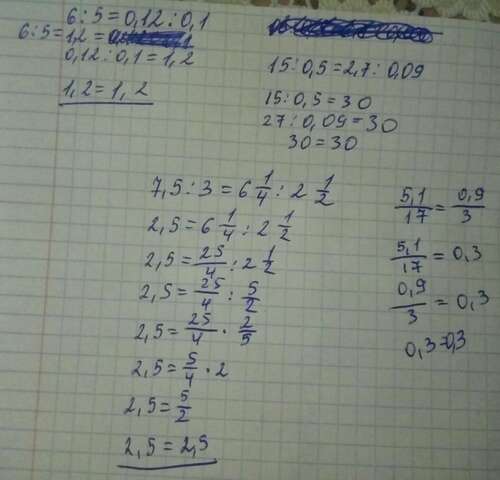 6:5=0,12:0,1
6:5=1,2=
0,12:0,1=1,2
1,2=1,2
15:0,5=2,7:0,09
15:0,5=30
27:0,09=30
30=30
7,5:3=6 1/4:2 1/2
2,5=6 1/4:2 1/2
2,5=25/4:2 1/2
2,5=25/4:5/2
2,5=25/4·2/5
2,5=5/4·2
2,5=5/2
2,5=2,5
5,1/17=0,9/3
5,1/17=0,3
0,9/3=0,3
0,3=0,3